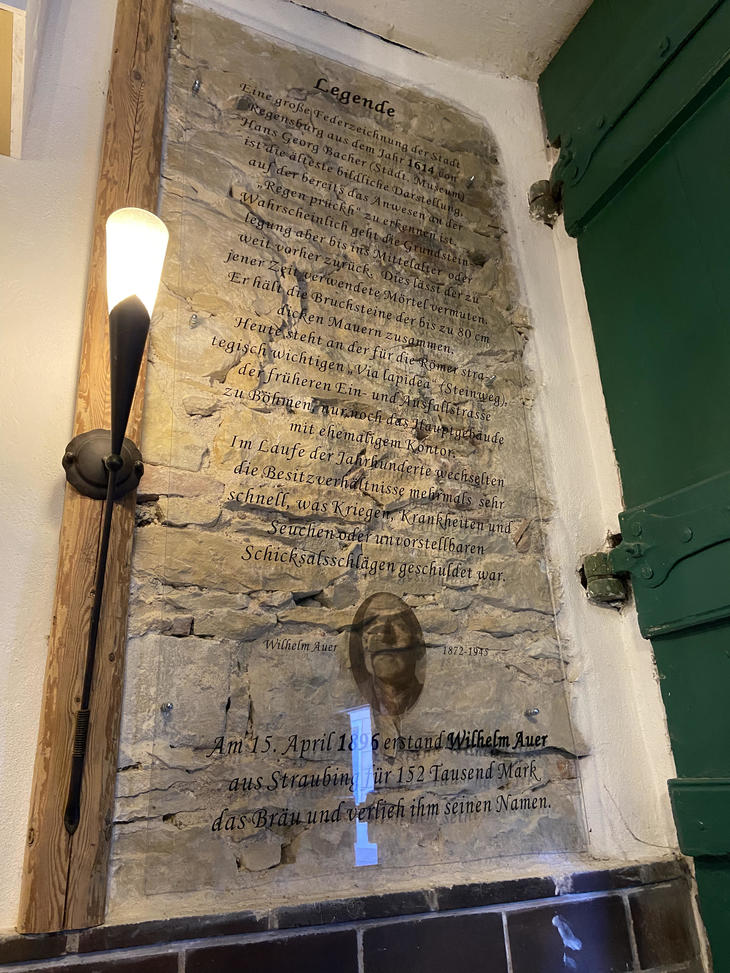 Legende
Eine große Federzeichnung der Stadt
Regensburg aus dem Jahr 1614 von
Hans Georg Bacher (Städt. Museum)
ist die älteste bildliche Darstellung,
auf der bereits das Anwesen an der
„Regen prückh" zu erkennen ist.
Wahrscheinlich geht die Grundstein-
legung aber bis ins Mittelalter oder
weit vorher zurück. Dies lässt der zu
jener Zeit verwendete Mörtel vermuten.
Er hält die Bruchsteine der bis zu 80 cm
dicken Mauern zusammen.
Heute steht an der für die Römer stra-
tegisch wichtigen „Via lapidea" (Steinweg),
der früheren Ein- und Ausfallstrasse
zu Böhmen, nur noch das Hauptgebäude
mit ehemaligem Kontor.
Im Laufe der Jahrhunderte wechselten
die Besitzverhältnisse mehrmals sehr
schnell, was Kriegen, Krankheiten und
Seuchen oder unvorstellbaren
Schicksalsschlägen geschuldet war.
Wilhelm Auer 1872-1945
Am 15. April 1896 erstand Wilhelm Auer
aus Straubing für 152 Tausend Mark
das Bräu und verlieh ihm seinen Namen.